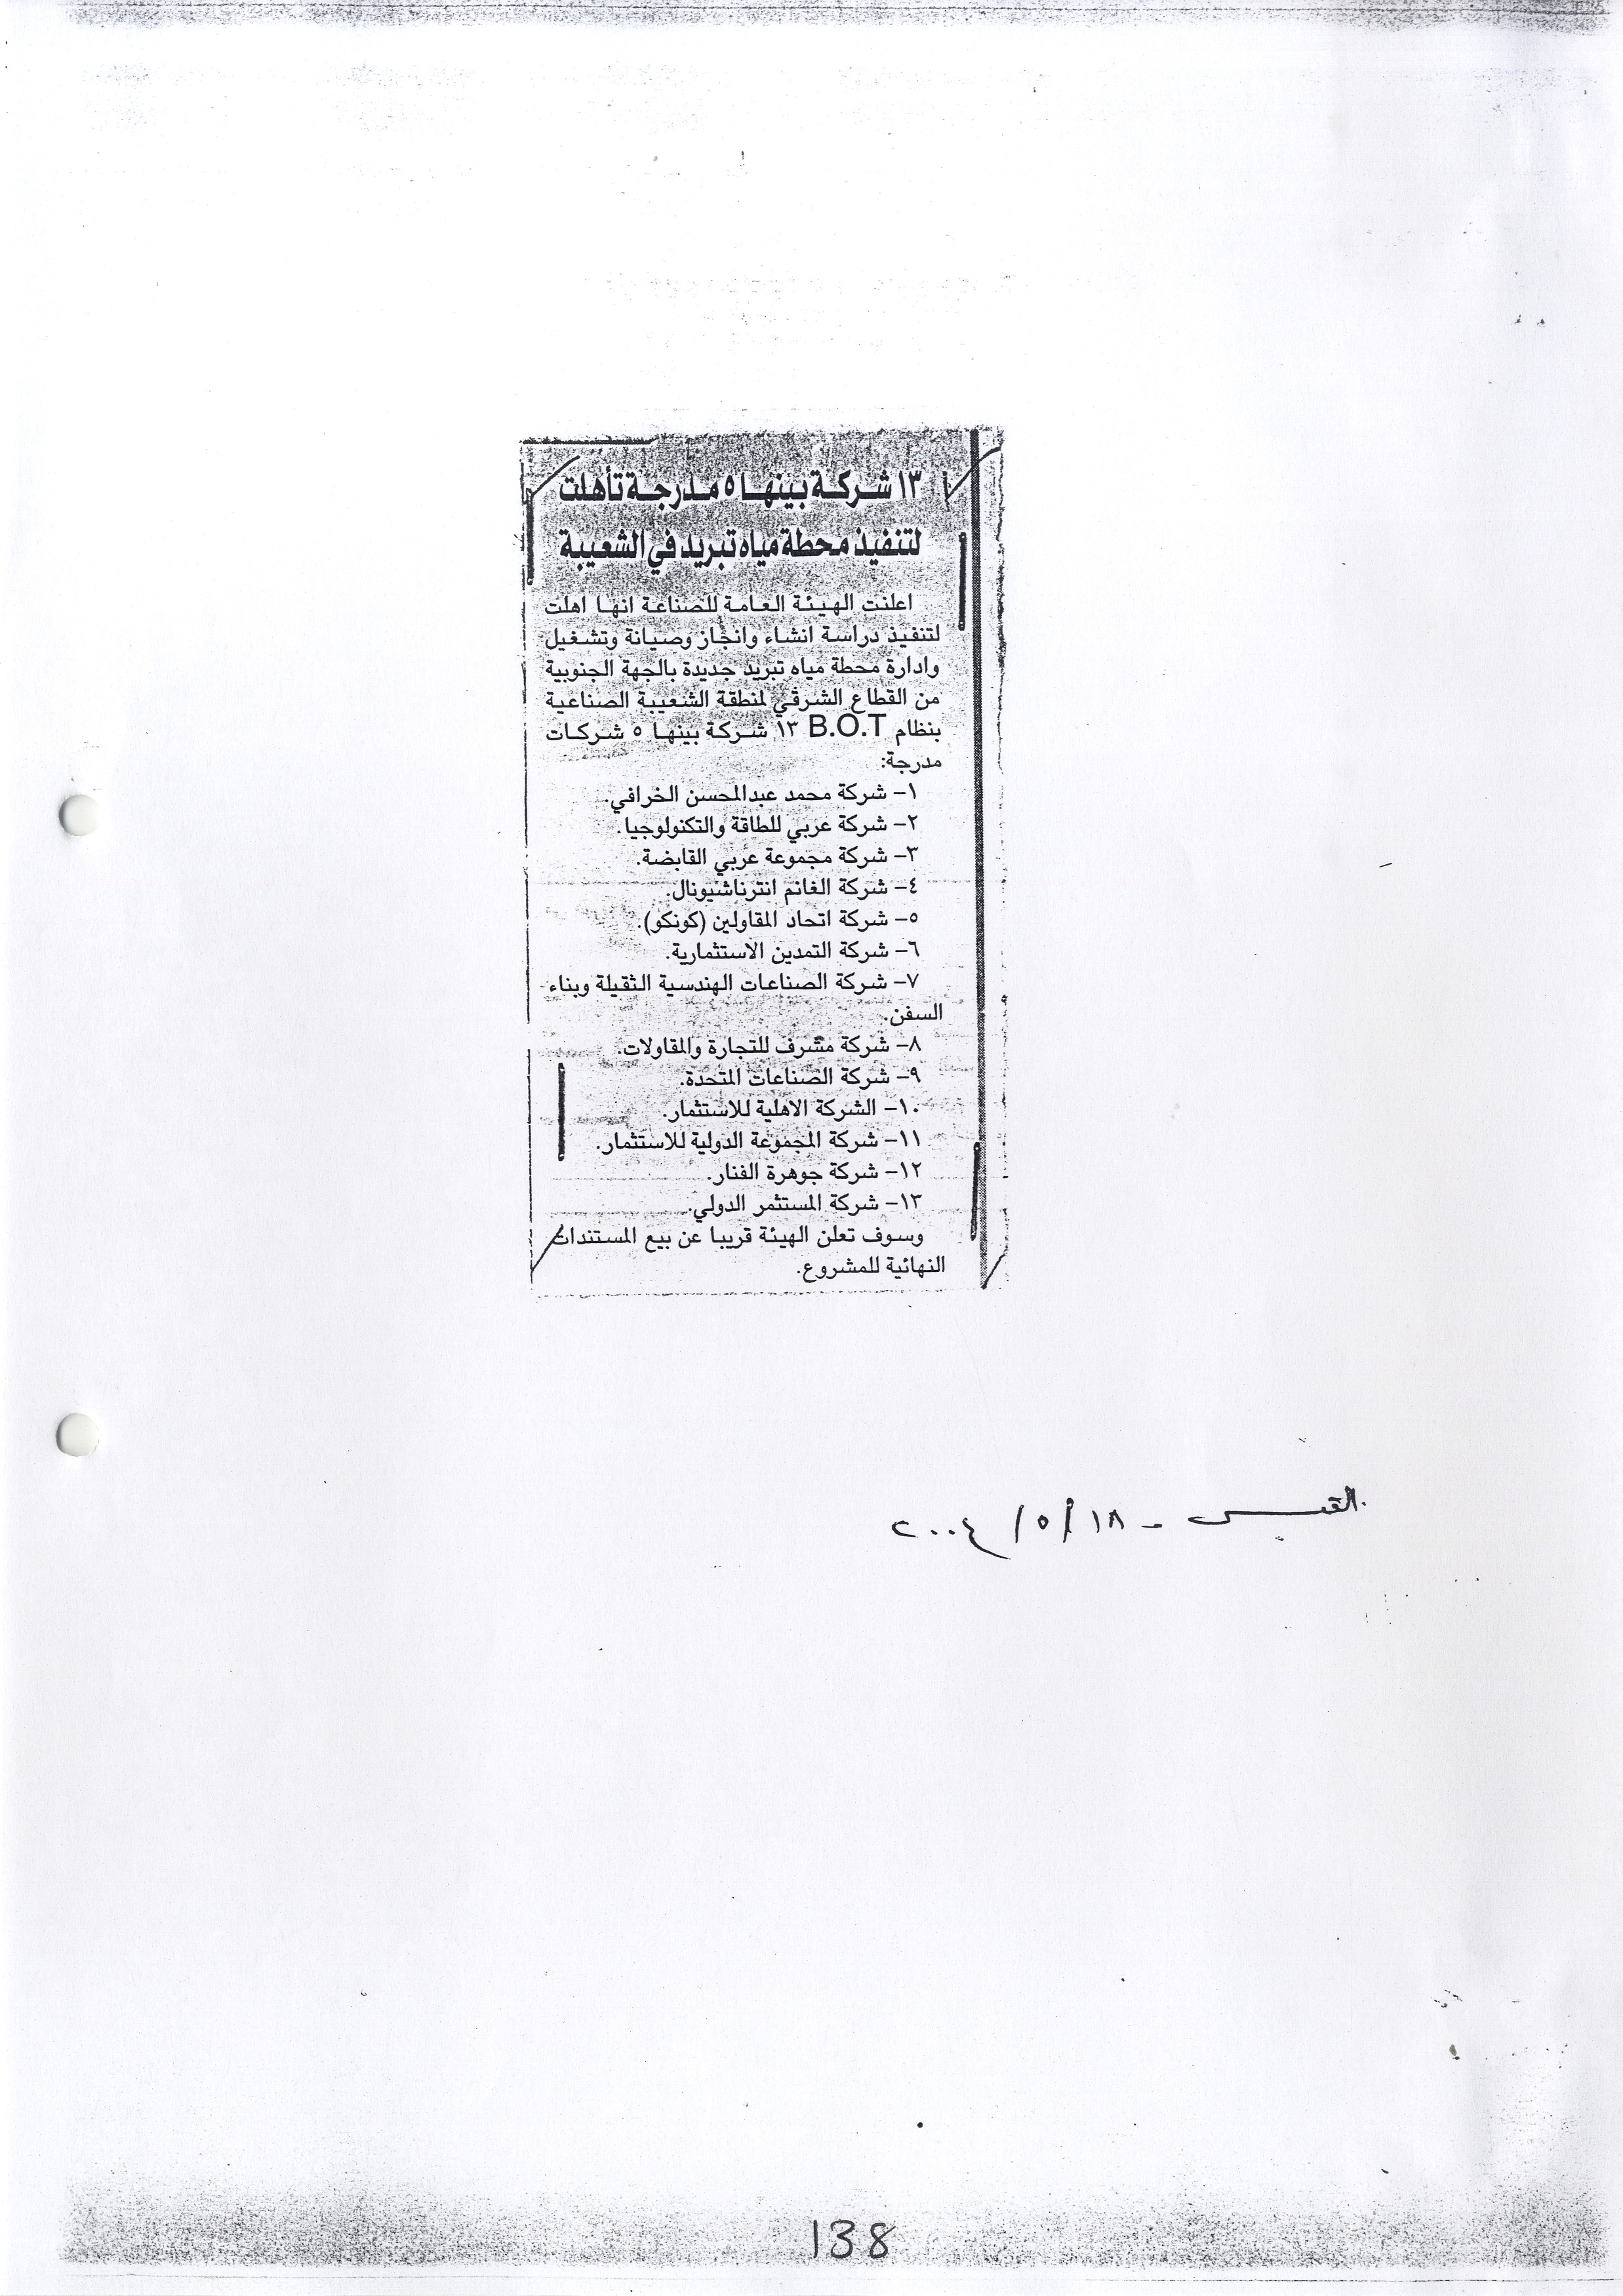 ١٣ شركة بينها ٥ مدرجة تأهلت
لتنفيذ محطة مياه تبريد في الشعيبة
اعلنت الهيئة العامة للصناعة انها اهلت
لتنفيذ دراسة انشاء وانجاز وصيانة وتشغيل
وادارة محطة مياه تبريد جديدة بالجهة الجنوبية
من القطاع الشرقي لمنطقة الشعيبة الصناعية
بنظام B.O.T ١٣ شركة بينها ٥ شركات
مدرجة:
١- شركة محمد عبدالمحسن الخرافي.
٢- شركة عربي للطاقة والتكنولوجيا.
٣- شركة مجموعة عربي القابضة.
٤- شركة الغانم انترناشيونال.
٥- شركة اتحاد المقاولين (كونكو).
٦- شركة التمدين الاستثمارية.
٧- شركة الصناعات الهندسية الثقيلة وبناء
السفن.
٨- شركة مشرف للتجارة والمقاولات.
٩- شركة الصناعات المتحدة.
١٠- الشركة الاهلية للاستثمار.
١١- شركة المجموعة الدولية للاستثمار.
١٢- شركة جوهرة الفنار.
١٣- شركة المستثمر الدولي.
وسوف تعلن الهيئة قريبا عن بيع المستندات
النهائية للمشروع.
القبس - ١٨/٥/٢٠٠٤
138